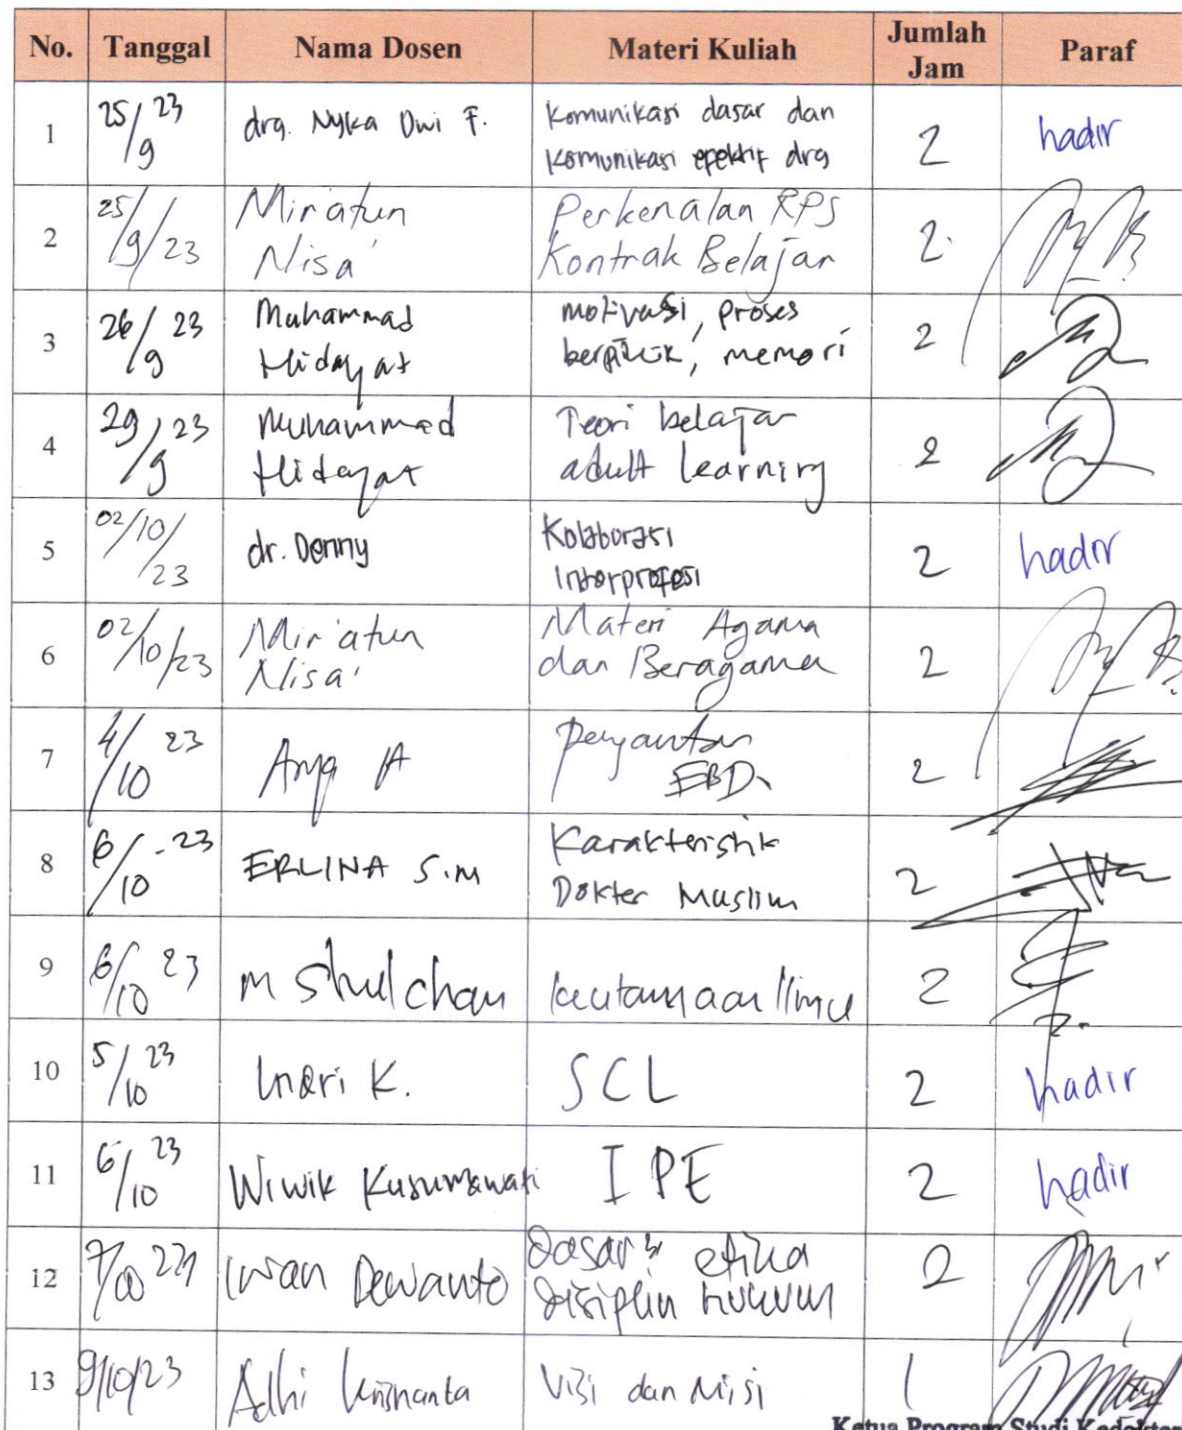 No. Tanggal Nama Dosen Materi Kuliah Jumlah Jam Paraf
1 25/9 23 drg. Nyka Dwi F. Komunikasi dasar dan 2 hadir
komunikasi efektif drg
2 25/9/23 Mir'atun Perkenalan RPS 2
Nisa' Kontrak Belajar
3 26/9 23 Muhammad motivasi, proses 2
Hidayat berpikir, memori
4 29/9 23 Muhammad Teori belajar 2
Hidayat adult learning
5 02/10/23 dr. Denny Kolaborasi 2 hadir
Interprofesi
6 02/10/23 Mir'atun Materi Agama 2
Nisa' dan Beragama
7 4/10 23 A Pengantar 2
EBD
8 6/10-23 ERLINA S.M Karakteristik 2
Dokter Muslim
9 6/10 23 M Shulchan keutamaan Ilmu 2
10 5/10 23 K. SCL 2 hadir
11 6/10 23 Wiwik Kusumawati IPE 2 hadir
12 Iwan Dewanto Dasar2 etika 2
disiplin hukum
13 9/10/23 Adhi Visi dan Misi 1
Ketua Program Studi